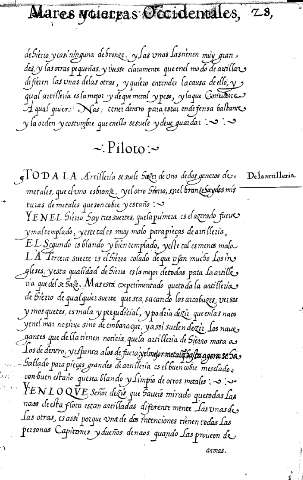 Mares y tierras Occidentales, 28,
de hierro y casi ninguna de bronze, y las unas las tienen muy gran
des, y las otras pequeñas, y viesse claramente que en el modo de artillar
difieren las unas delas otras, y quiero entender la causa dello, y
qual artilleria es la mejor y de que metal y peso, y la que
a qual quier Nao, tener dentro para estar en defensa bastante
y la orden y costumbre que en ella se suele y deve guardar:
Piloto:
TODA LA Artilleria se suele hazer de uno de dos generos de Delartilleria.
metales, que el uno es bronze, y el otro hierro, en el bronze
turas de metales que son cobre y estaño
Y EN EL hierro ay tres suertes, que la primera es el
y mal templado, y este tal es muy malo para pieças de artilleria,
EL Segundo es blando y bien templado, y este tal es menos malo.
LA Tercera suerte es el hierro colado de que usan mucho los in
gleses, y esta qualidad de hierro es la mejor de todas para la artille
ria que del se haze. Mas está experimentado que toda la artilleria
de hierro de qualquier suerte que sea, sacando los arcabuzes,
y mosquetes, es mala y perjudicial, y podria dezir que en las naos
y en el mar no sirve sino de embaraço, ya si suelen dezir los nave
gantes que della tienen noticia, que la artilleria de hierro mata a
los de dentro, y espanta a los de fuera y el mejor metal que hasta agora se ha
hallado para pieças grandes de artilleria es el buen cobre mesclado
con buen estaño que sea blando y limpio de otros metales:
Y EN LO QUE Señor dezis que haveis mirado que todas las
naos desta flota estan artilladas diferente mente las unas de
las otras, es assi porque una de dos intenciones tienen todas las
personas Capitanes y dueños de naos quando las proveen de
armas.